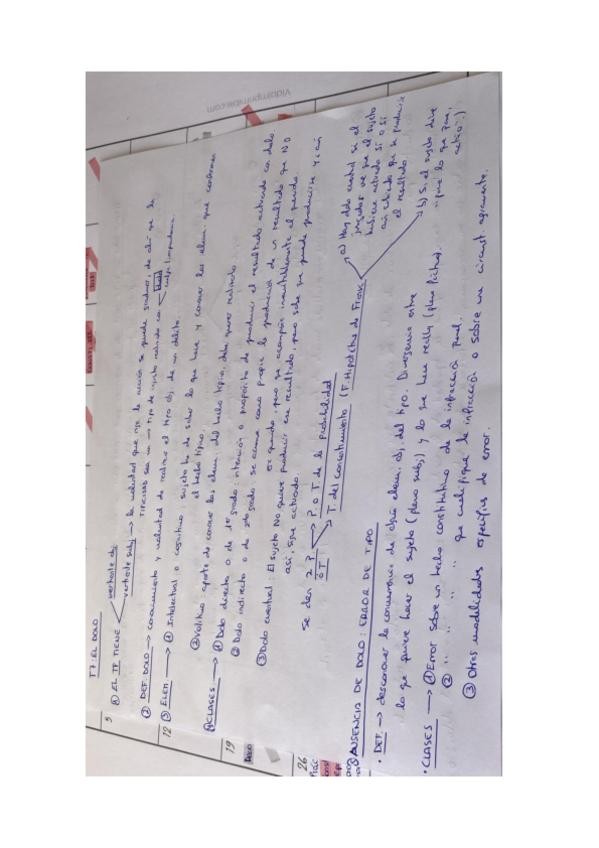 T7: EL DOLO
① EL TP TIENE vertiente obj
vertiente subj → la voluntad que rige la acción se puede graduar, de ahí se la
tipicidad sea un → tipo de injusto realizado con dolo
culpa/imprudencia.
② DEF. DOLO → conocimiento y voluntad de realizar el tipo obj. de un delito.
③ ELEM → ① Intelectual o cognitivo: sujeto ha de saber lo que hace y conocer los elem. que conforman
el hecho típico.
② Volitivo: aparte de conocer los elem. del hecho típico, debe querer realizarlo
④ CLASES → ① Dolo directo o de 1er grado: intención o propósito de producir el resultado actuando con dolo
② Dolo indirecto o de 2do grado: se asume como propio la producción de un resultado que NO
es querido, pero que se acompaña inevitablemente al querido.
③ Dolo eventual: El sujeto NO quiere producir ese resultado, pero sabe que puede producirse y aún
así, sigue actuando.
Se dan 2 P o T → P. o T de la probabilidad
→ T del consentimiento (F. Hipotética de Frank)
a) Hay dolo eventual si el
juzgador ve que el sujeto
hubiese actuado sí o sí
aún sabiendo que se produciría
el resultado.
b) Si el sujeto dice
"pase lo que pase,
actúo".)
⑤ AUSENCIA DE DOLO: ERROR DE TIPO
• DEF. → desconocer la concurrencia de algún elem. obj. del tipo. Divergencia entre
lo que quiere hacer el sujeto (plano subj) y lo que hace really (plano fáctico).
• CLASES → ① Error sobre un hecho constitutivo de la infracción penal.
② " " " " que cualifique la infracción o sobre una circunst. agravante.
③ Otras modalidades específicas de error.
5
12
19
26
DOLO
Vidaimprimible.com